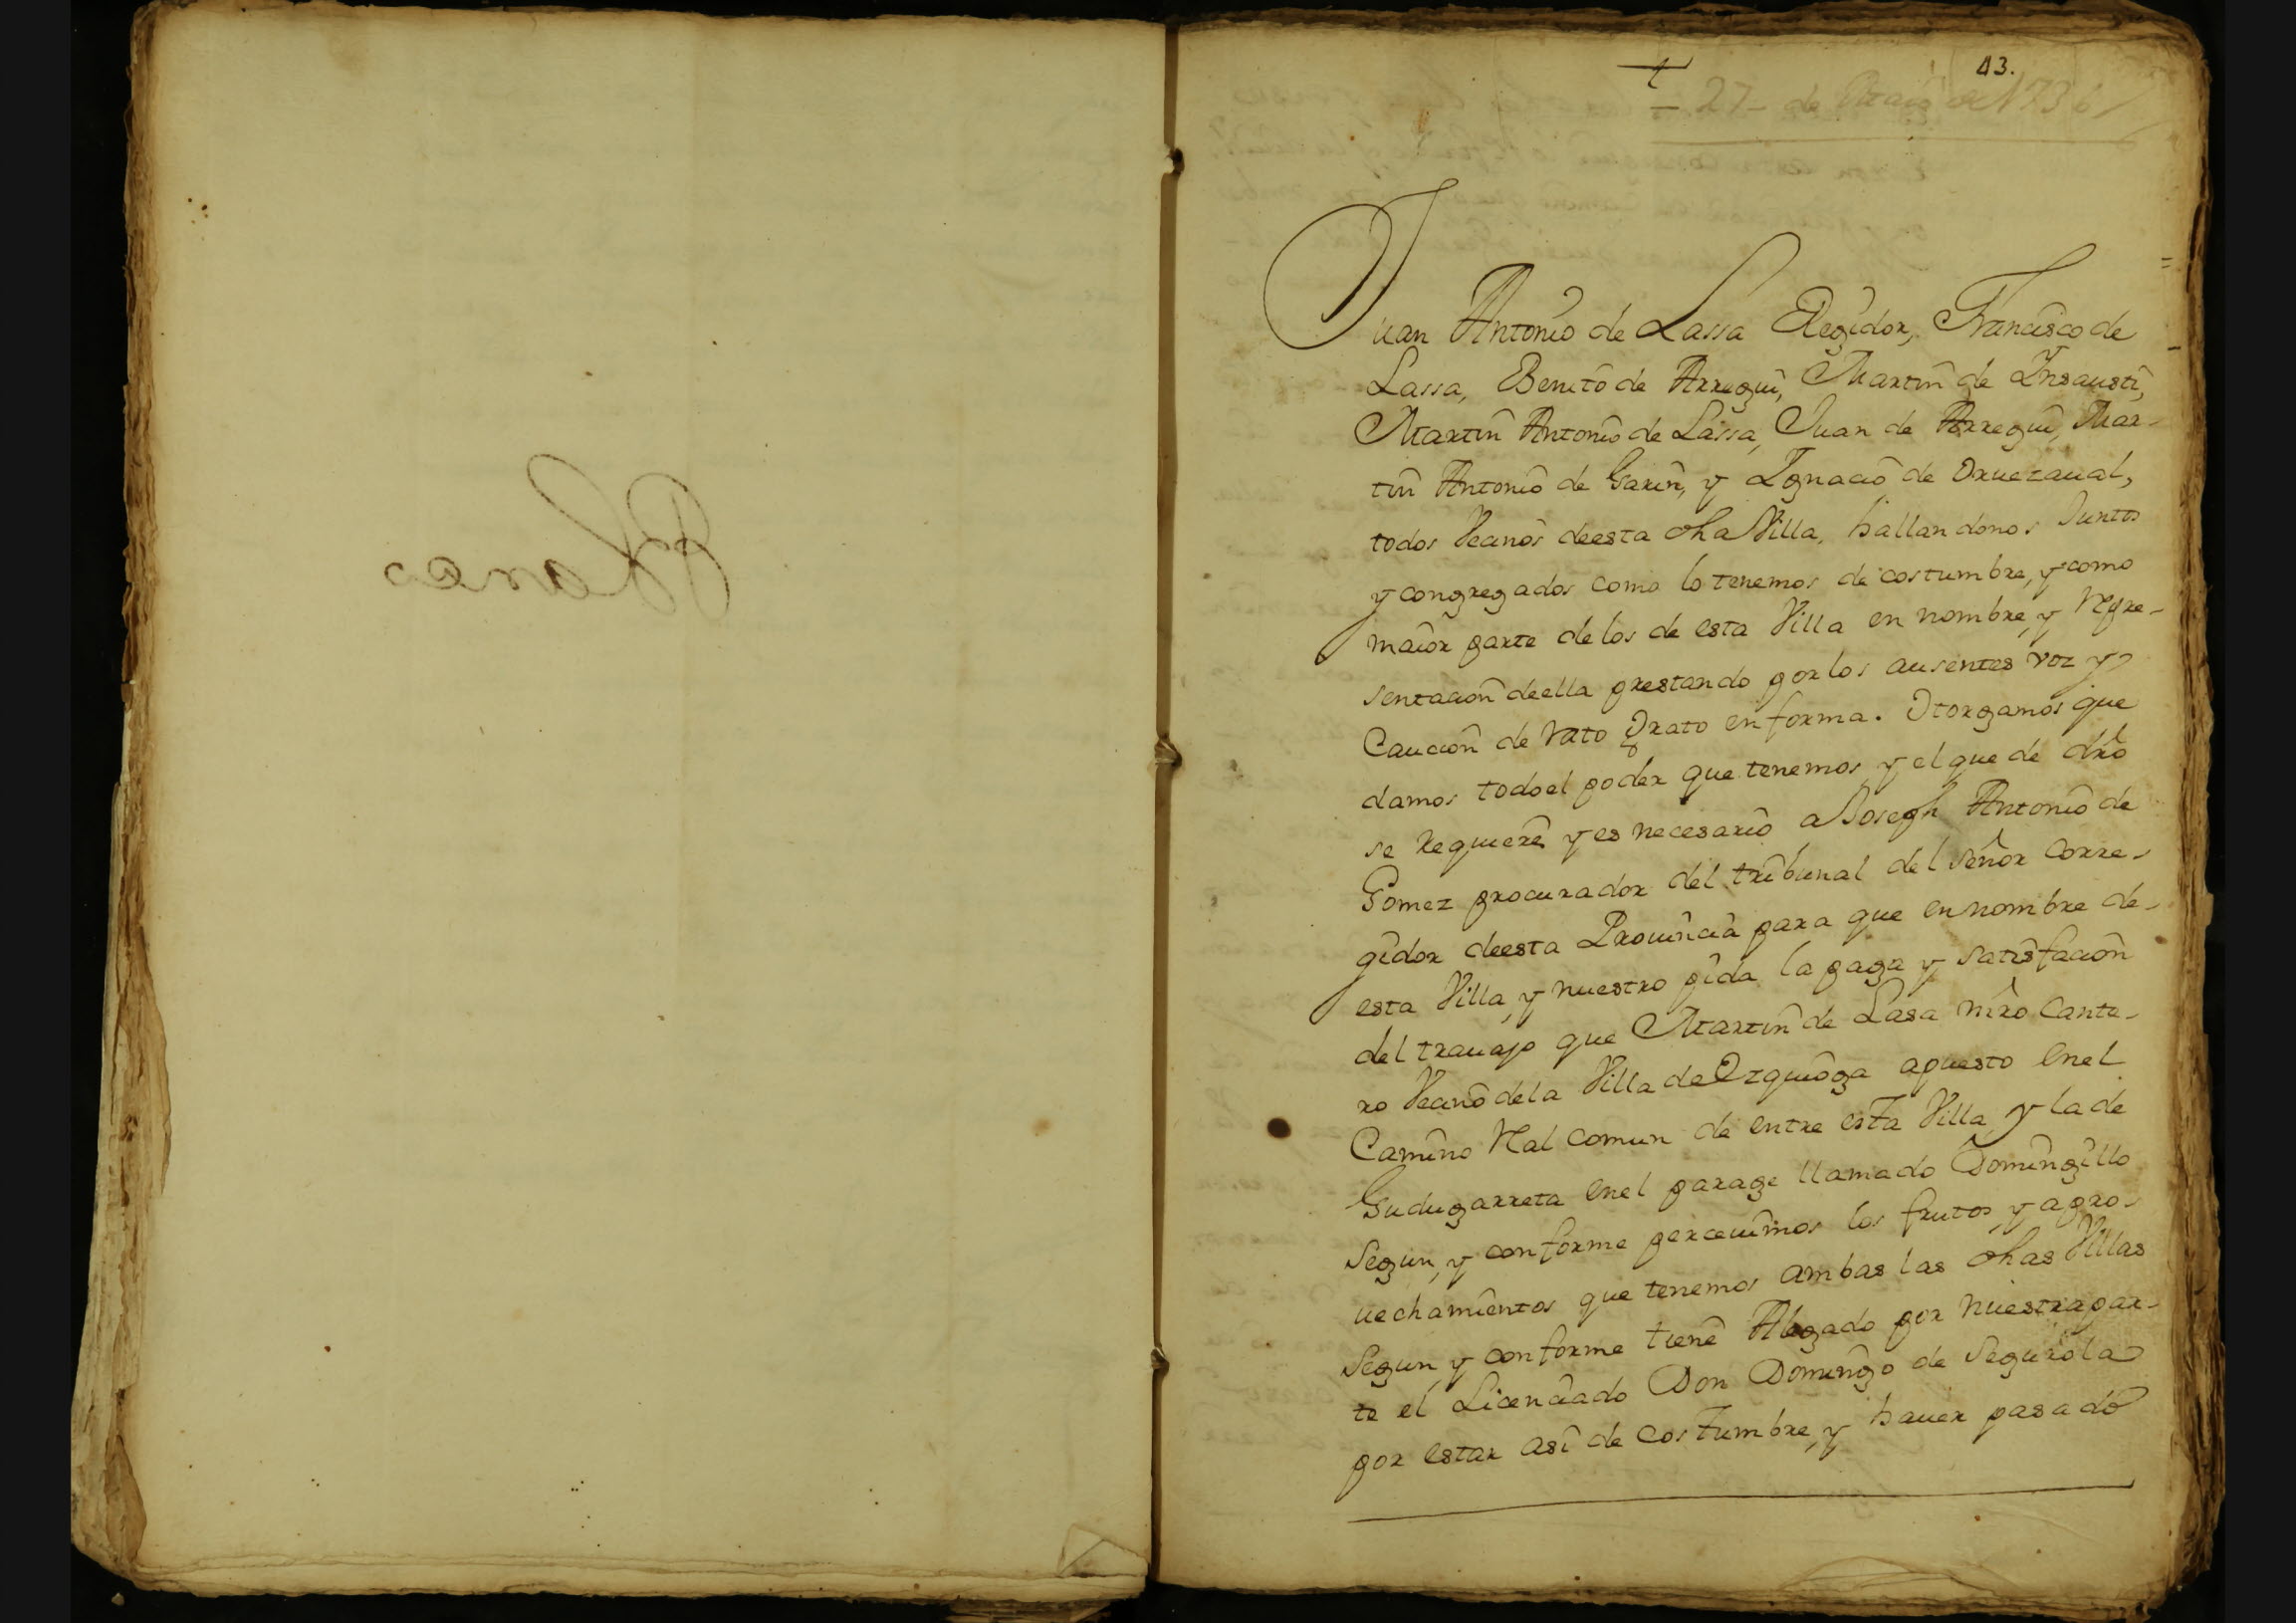 Blanco
43.
27 de Maio de 1736
Juan Antonio de Lassa Regidor, Francisco de
Lassa, Benito de Arregui, Martin de Insausti,
Martin Antonio de Lassa, Juan de Arregui, Mar-
tin Antonio de Garin, y Ignacio de Oruezaual,
todos Vecinos deesta dha Villa, hallandonos Juntos
y congregados como lo tenemos de costumbre, y como
maior parte de los de esta Villa en nombre, y Repre-
sentacion deella prestando por los ausentes voz y
Caucion de rato grato en forma. Otorgamos que
damos todo el poder que tenemos y el que de dro
se Requiere y es necesario a Joseph Antonio de
Gomez procurador del tribunal del señor Corre-
gidor deesta Prouincia para que en nombre de-
esta Villa, y nuestro pida la paga y satisfacion
del trauajo que Martin de Lasa mro Cante-
ro Vecino dela Villa de Ezquioga apuesto enel
Camino Ral comun de entre esta Villa, y la de
Gudugarreta enel parage llamado Domingillo
Segun, y conforme perceuimos los frutos, y apro-
uechamientos que tenemos ambas las dhas Villas
Segun, y conforme tiene Alegado por nuestra par-
te el Licenciado Don Domingo de Segurola
por estar asi de costumbre, y hauer pasado